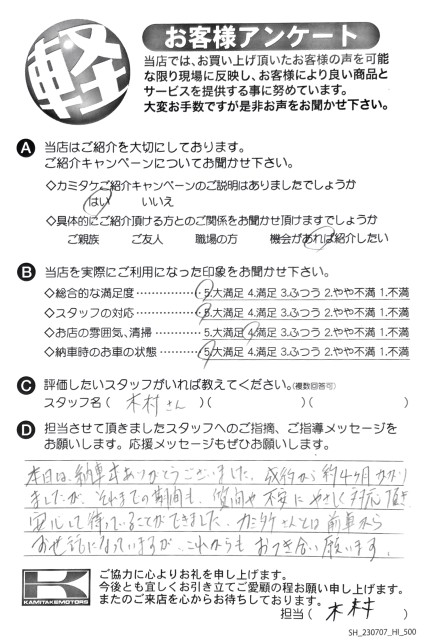 軽
お客様アンケート
当店では、お買い上げ頂いたお客様の声を可能
な限り現場に反映し、お客様により良い商品と
サービスを提供する事に努めています。
大変お手数ですが是非お声をお聞かせ下さい。
A 当店はご紹介を大切にしております。
ご紹介キャンペーンについてお聞かせ下さい。
◇カミタケご紹介キャンペーンのご説明はありましたでしょうか
はい いいえ
◇具体的にご紹介頂ける方とのご関係をお聞かせ頂けますでしょうか
ご親族 ご友人 職場の方 機会があれば紹介したい
B 当店を実際にご利用になった印象をお聞かせ下さい。
◇総合的な満足度……………5.大満足 4.満足 3.ふつう 2.やや不満 1.不満
◇スタッフの対応……………5.大満足 4.満足 3.ふつう 2.やや不満 1.不満
◇お店の雰囲気、清掃………5.大満足 4.満足 3.ふつう 2.やや不満 1.不満
◇納車時のお車の状態………5.大満足 4.満足 3.ふつう 2.やや不満 1.不満
C 評価したいスタッフがいれば教えてください。(複数回答可)
スタッフ名( 木村さん )( )( )
D 担当させて頂きましたスタッフへのご指摘、ご指導メッセージを
お願いします。応援メッセージもぜひお願いします。
本日は、納車ありがとうございました。成約から約4ヶ月かかり
ましたが、それまでの期間も、質問や不安にやさしく対応頂き
安心して待っていることができました。カミタケさんとは前車から
お世話になっていますが、これからもおつき合い願います。
KAMITAKE MOTORS
ご協力に心よりお礼を申し上げます。
今後とも宜しくお引き立てご愛顧の程お願い申し上げます。
またのご来店を心からお待ちしております。
担当( 木村 )
SH_230707_HI_500